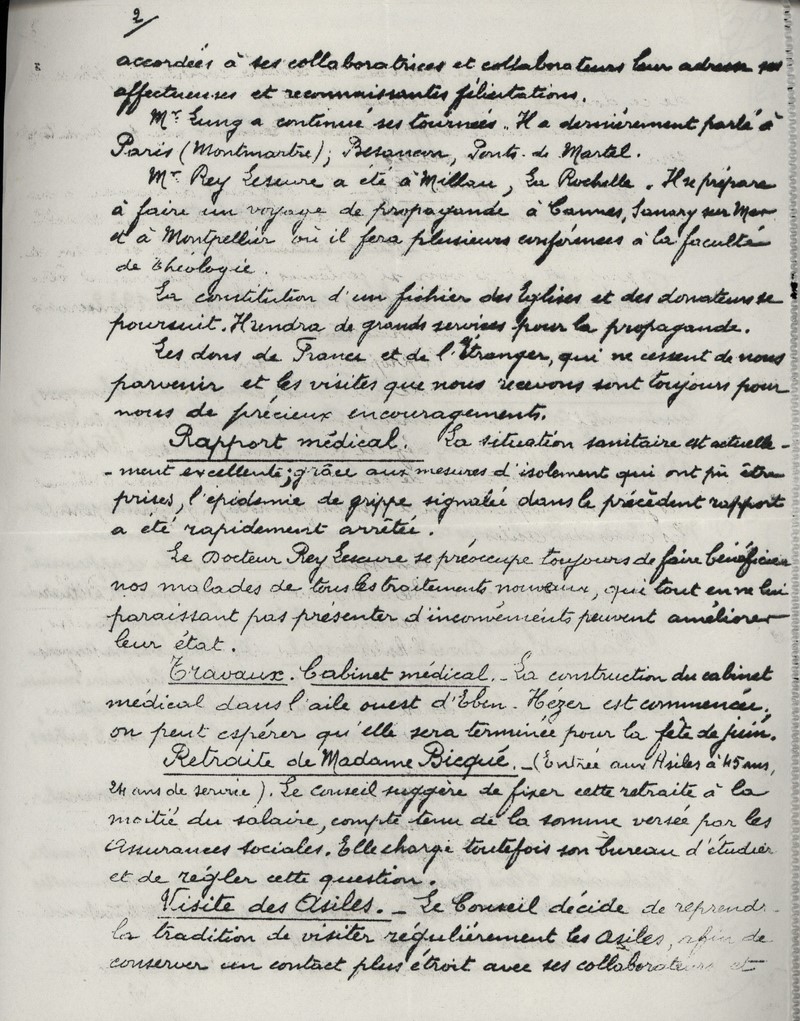 2
accordées à ses collaboratrices et collaborateurs leur adresse ses
affectueuses et reconnaissantes félicitations.
Mr. Lung a continué ses tournées. Il a dernièrement parlé à
Paris (Montmartre), Besancon, Ponts-de Martel.
Mr. Rey Lescure a été à Millau, La Rochelle. Il se prépare
à faire un voyage de propagande à Cannes, Sanary sur Mer
et à Montpellier où il fera plusieurs conférences à la faculté
de théologie.
La constitution d'un fichier des Eglises et des donateurs se
poursuit. Il rendra de grands services pour la propagande.
Les dons de France et de l'Etranger, qui ne cessent de nous
parvenir et les visites que nous recevons sont toujours pour
nous de précieux encouragements.
Rapport médical. La situation sanitaire est actuelle-
-ment excellente; grâce aux mesures d'isolement qui ont pu être
prises, l'épidémie de grippe signalée dans le précèdent rapport
a été rapidement arrêtée.
Le Docteur Rey Lescure se préoccupe toujours de faire bénéficier
nos malades de tous les traitements nouveaux, qui tout en ne lui
paraissant pas présenter d'inconvénients peuvent améliorer
leur état.
Travaux. Cabinet médical. - La construction du cabinet
médical dans l'aile ouest d'Eben-Hézer est commencée.
on peut espérer qu'elle sera terminée pour la fête de juin.
Retraite de Madame Bicqué. - (Entrée aux Asiles à 45 ans,
24 ans de service). Le Conseil suggère de fixer cette retraite à la
moitié du salaire, compte tenu de la somme versée par les
Assurances sociales. Elle charge toutefois son bureau d'étudier
et de régler cette question.
Visite des Asiles. - Le Conseil décide de reprendr
la tradition de visiter régulièrement les Asiles, afin de
conserver un contact plus étroit avec ses collaborateurs et